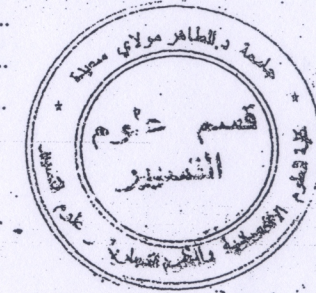 جامعة د.الطاهر مولاي سعيدة
قسم علوم
التسيير
كلية العلوم الاقتصادية والعلوم التجارية وعلوم التسيير